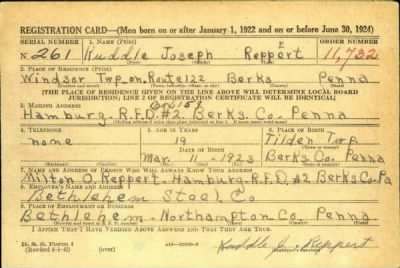 REGISTRATION CARD—(Men born on or after January 1, 1922 and on or before June 30, 1924)
SERIAL NUMBER 1. NAME (Print) ORDER NUMBER
N 261 Ruddle Joseph Reppert 11,732
(First) (Middle) (Last)
2. PLACE OF RESIDENCE (Print)
Windsor Twp. on Route 122 Berks Penna
[THE PLACE OF RESIDENCE GIVEN ON THE LINE ABOVE WILL DETERMINE LOCAL BOARD
JURISDICTION; LINE 2 OF REGISTRATION CERTIFICATE WILL BE IDENTICAL]
3. MAILING ADDRESS
Hamburg. R.F.D. #2 Berks. Co. Penna
4. TELEPHONE 5. AGE IN YEARS 6. PLACE OF BIRTH
none 19 Tilden Twp
DATE OF BIRTH
Mar. 11 1923 Berks. Co. Penna
7. NAME AND ADDRESS OF PERSON WHO WILL ALWAYS KNOW YOUR ADDRESS
Milton O. Reppert. Hamburg. R.F.D. #2 Berks Co. Pa
8. EMPLOYER'S NAME AND ADDRESS
Bethlehem Steel Co
9. PLACE OF EMPLOYMENT OR BUSINESS
Bethlehem. Northampton Co. Penna.
I AFFIRM THAT I HAVE VERIFIED ABOVE ANSWERS AND THAT THEY ARE TRUE.
D. S. S. Form 1
(Revised 6-9-42) (over) Ruddle J. Reppert